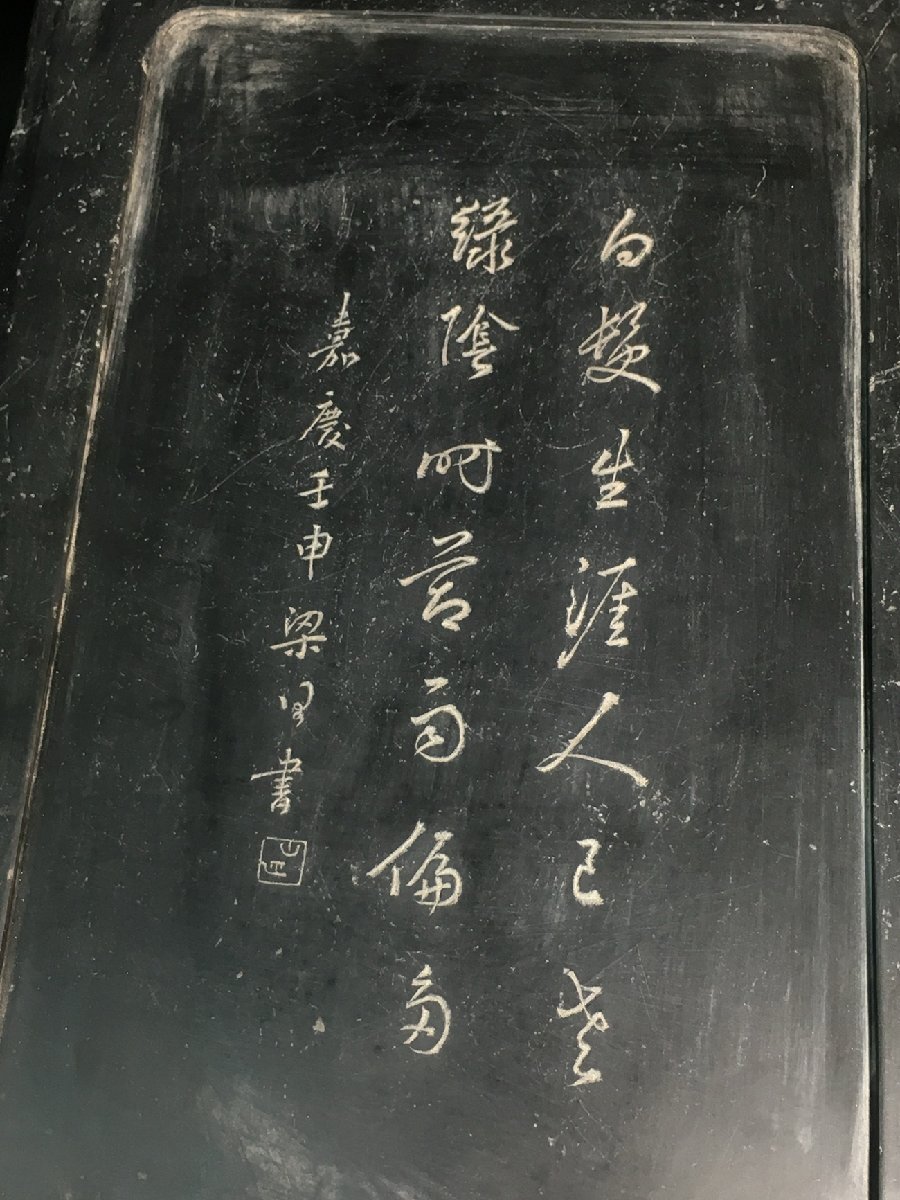 白髮生涯人已老
綠陰時節雨偏多
嘉慶壬申梁同書
山舟